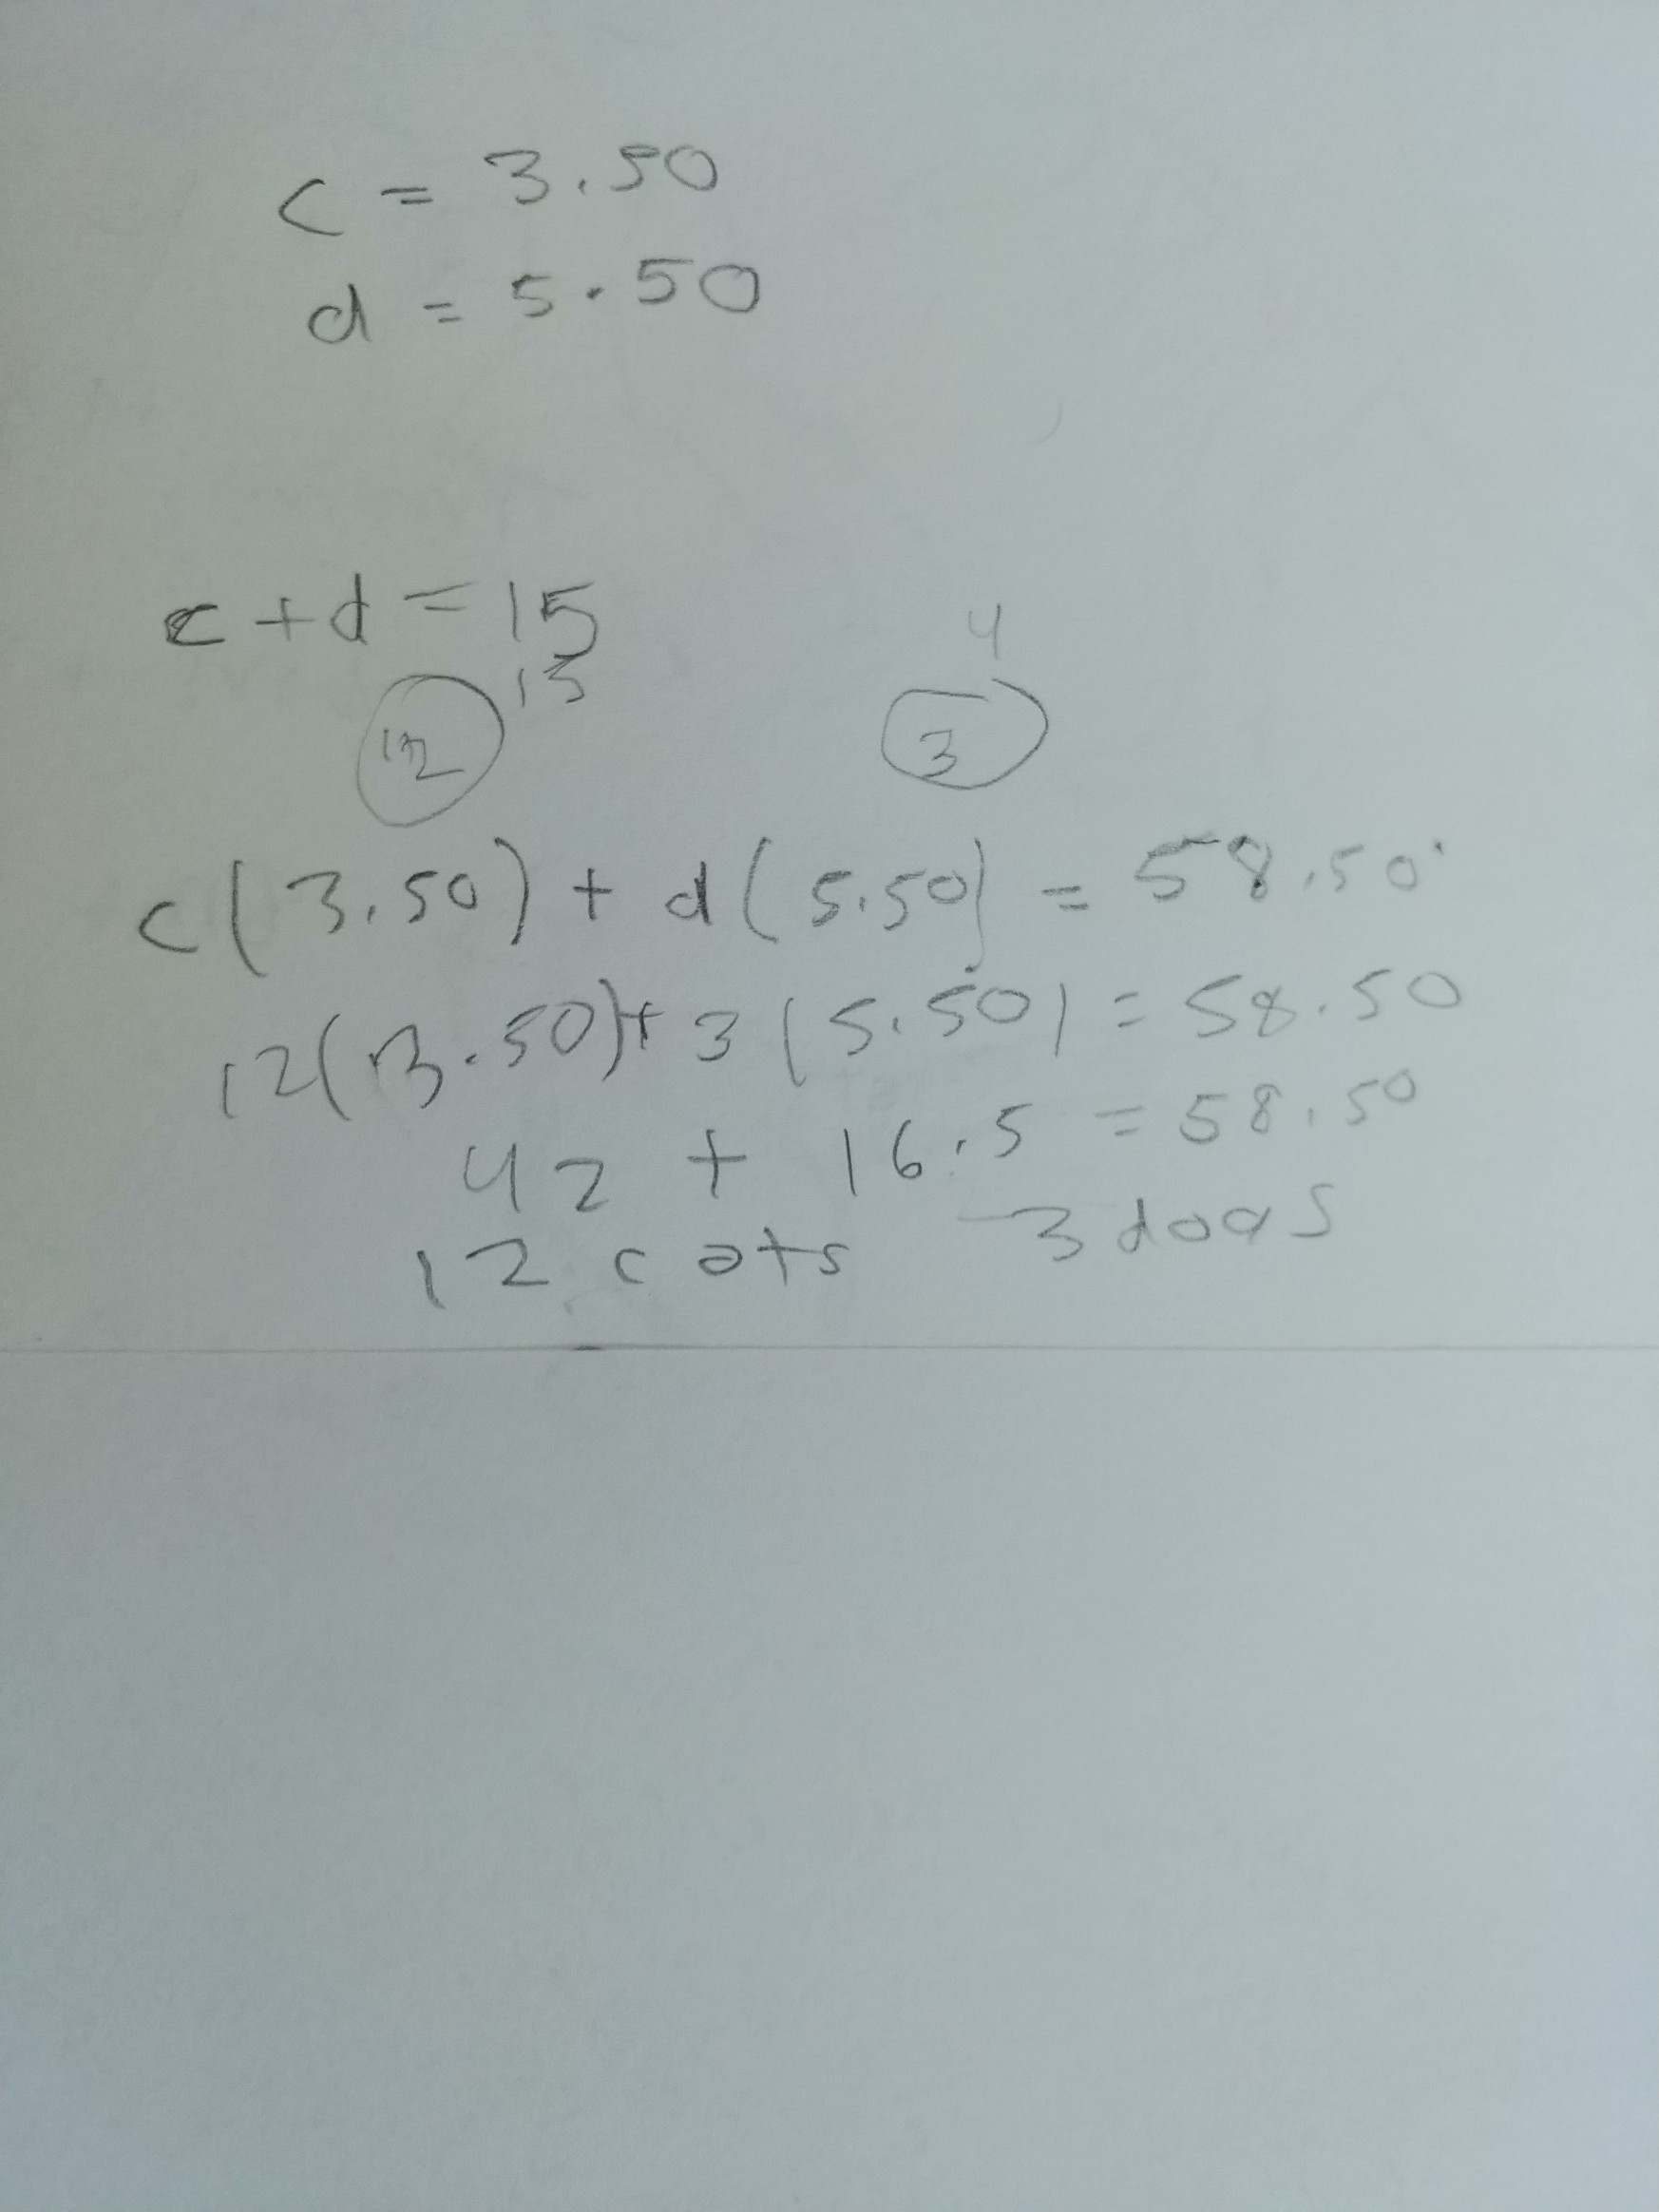 c = 3.50
d = 5.50
c + d = 15
4
13
12
3
c(3.50) + d(5.50) = 58.50
12(3.50) + 3(5.50) = 58.50
42 + 16.5 = 58.50
12 cats 3 dogs